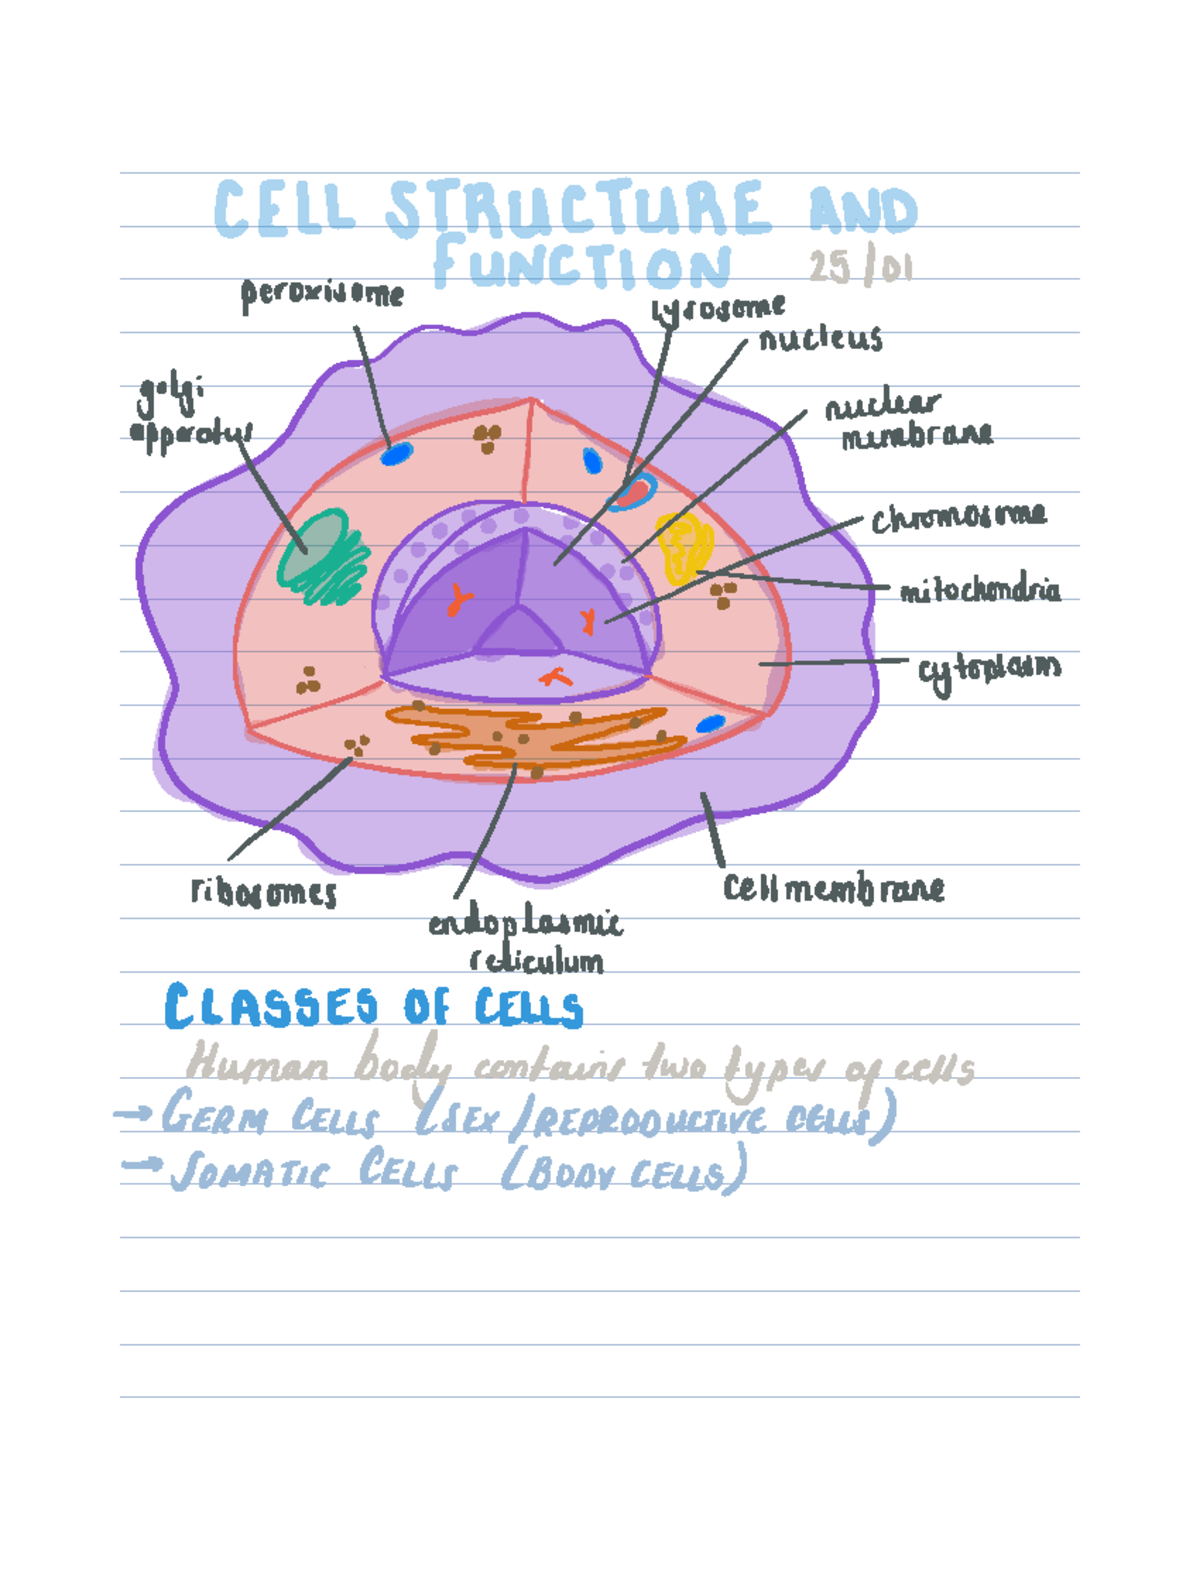 CELL STRUCTURE AND
FUNCTION 25/01
peroxisome
lyrosome
nucleus
golgi
apparatus
nuclear
membrane
chromosome
mitochondria
cytoplasm
ribosomes
cell membrane
endoplasmic
reticulum
CLASSES OF CELLS
Human body contains two types of cells
→ GERM CELLS (SEX/REPRODUCTIVE CELLS)
→ SOMATIC CELLS (BODY CELLS)